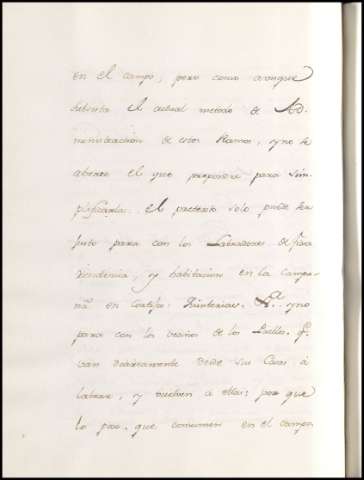 en el campo; pero como aunque
subsista el actual metodo de Ad-
ministracion de estos Ramos, y no se
abrase el que propondré para sim-
plificarla: el pretexto solo puede ser
justo para con los Labradores de fixa
residencia, y habitacion en la campa-
ña en Cortijos, Quinterias &.ª y no
para con los vecinos de los Pueblos, q.e
van diariamente desde sus Casas á
labrar, y vuelven á ellas; por que
lo poco, que consumen en el campo